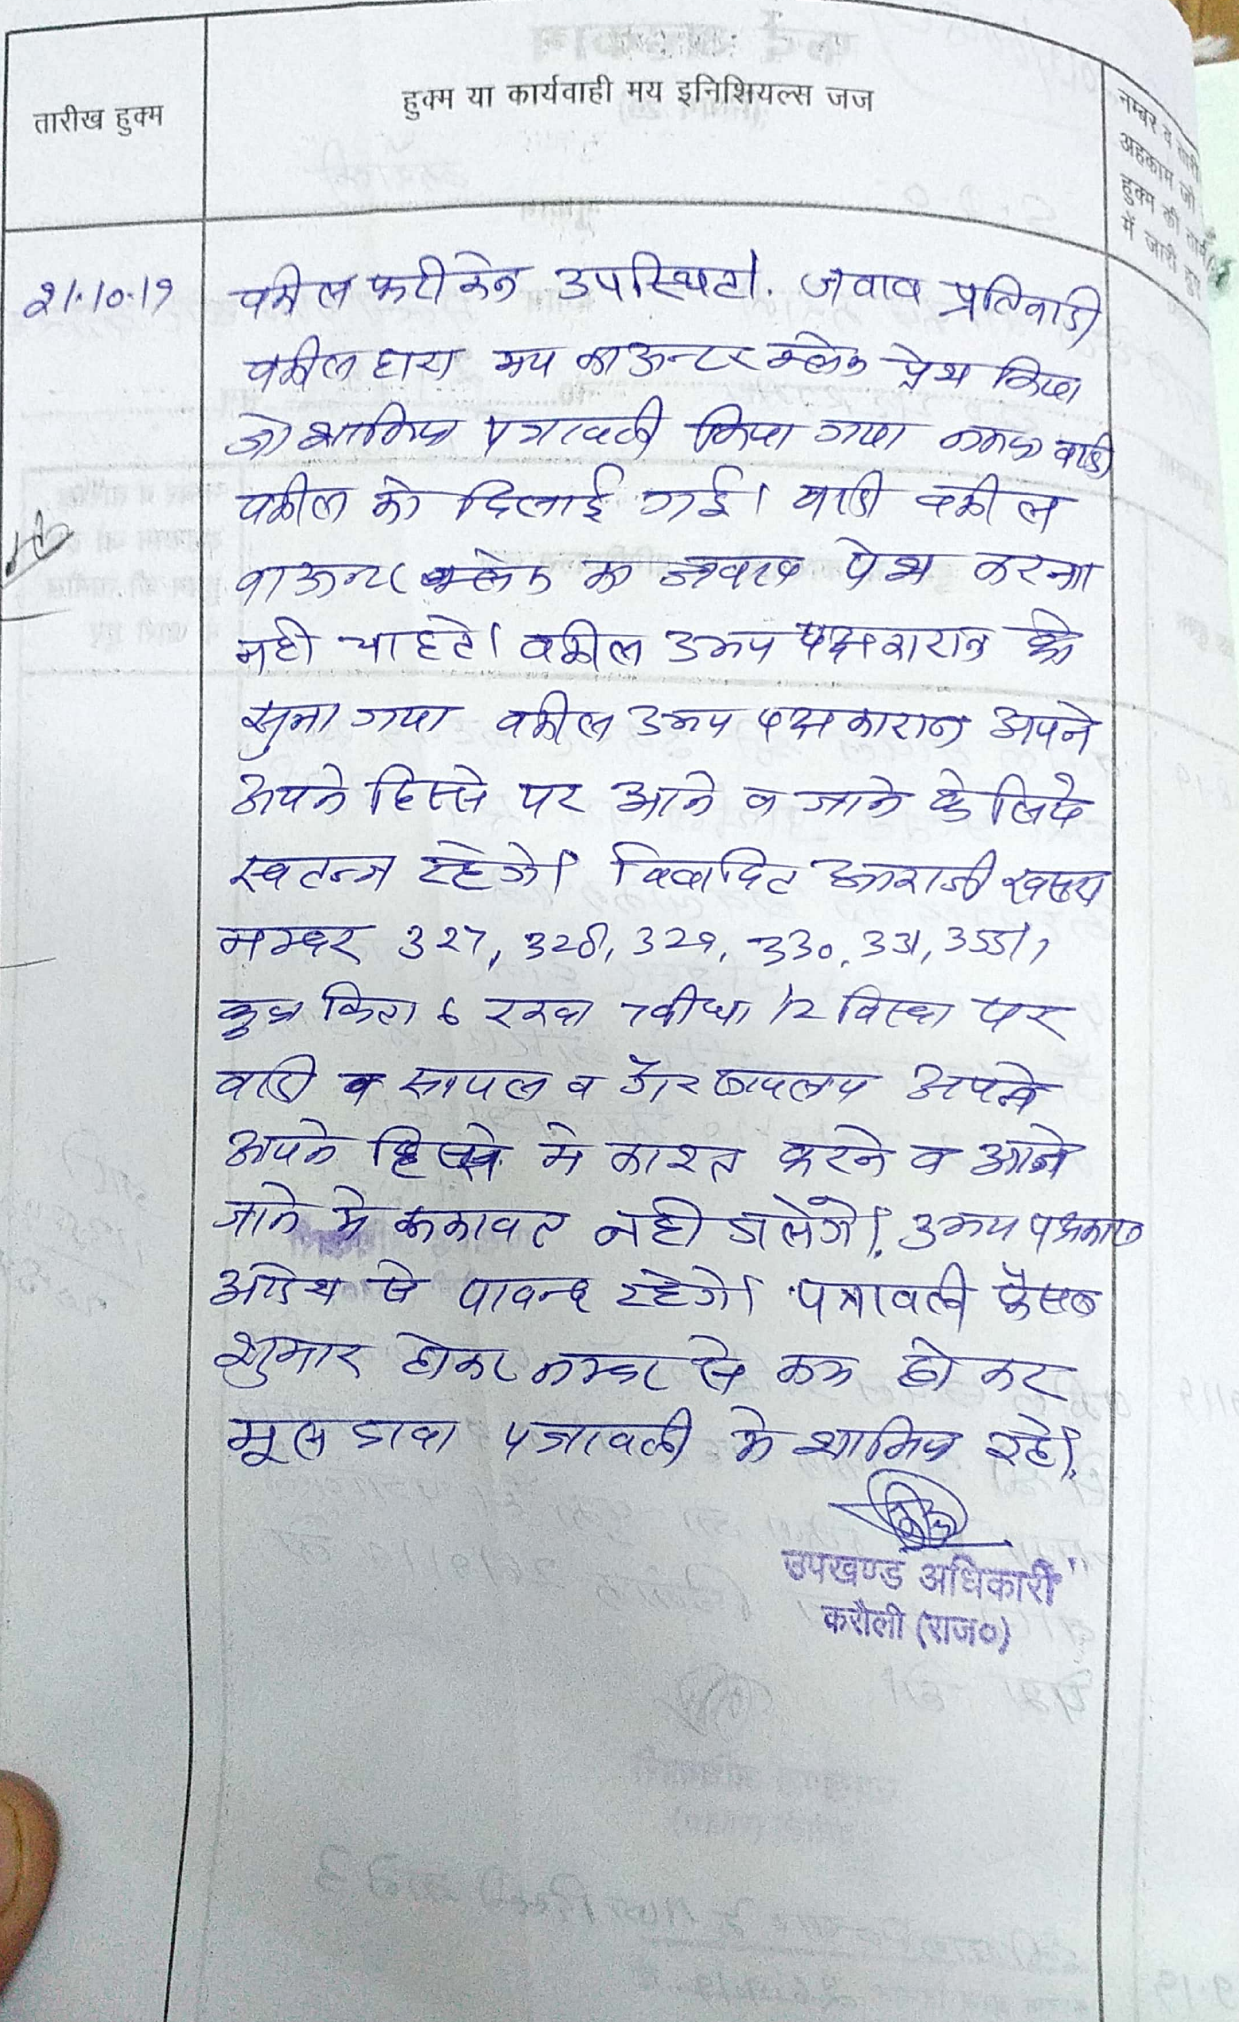 तारीख हुक्म
हुक्म या कार्यवाही मय इनिशियल्स जज
नम्बर व तारी
अहकाम जो
हुक्म की तामी
में जारी हुए
21.10.19
वकील फरीकेन उपस्थित। जवाव प्रतिवादी
वकील द्वारा मय काऊन्टर क्लेम पेश किया
जो शामिल पत्रावली किया गया नकल वादी
वकील को दिलाई गई। वादी वकील
काऊन्टर क्लेम का जवाव पेश करना
नही चाहते। वकील उभय पक्षकारान को
सुना गया वकील उभय पक्षकारान अपने
अपने हिस्से पर आने व जाने के लिये
स्वतन्त्र रहेगे। विवादित आराजी खसरा
नम्बर 327, 328, 329, 330, 331, 355/1
कुल किता 6 रकवा 7 वीघा 12 विस्वा पर
वादी व सायल व गैर सायलाय अपने
अपने हिस्से मे काश्त करने व आने
जाने मे रूकावट नही डालेगे। उभय पक्षकार
आदेश से पावन्द रहेगे। पत्रावली फैसल
शुमार होकर नम्बर से कम होकर
मूल दावा पत्रावली के शामिल रहे।
उपखण्ड अधिकारी
करौली (राज०)